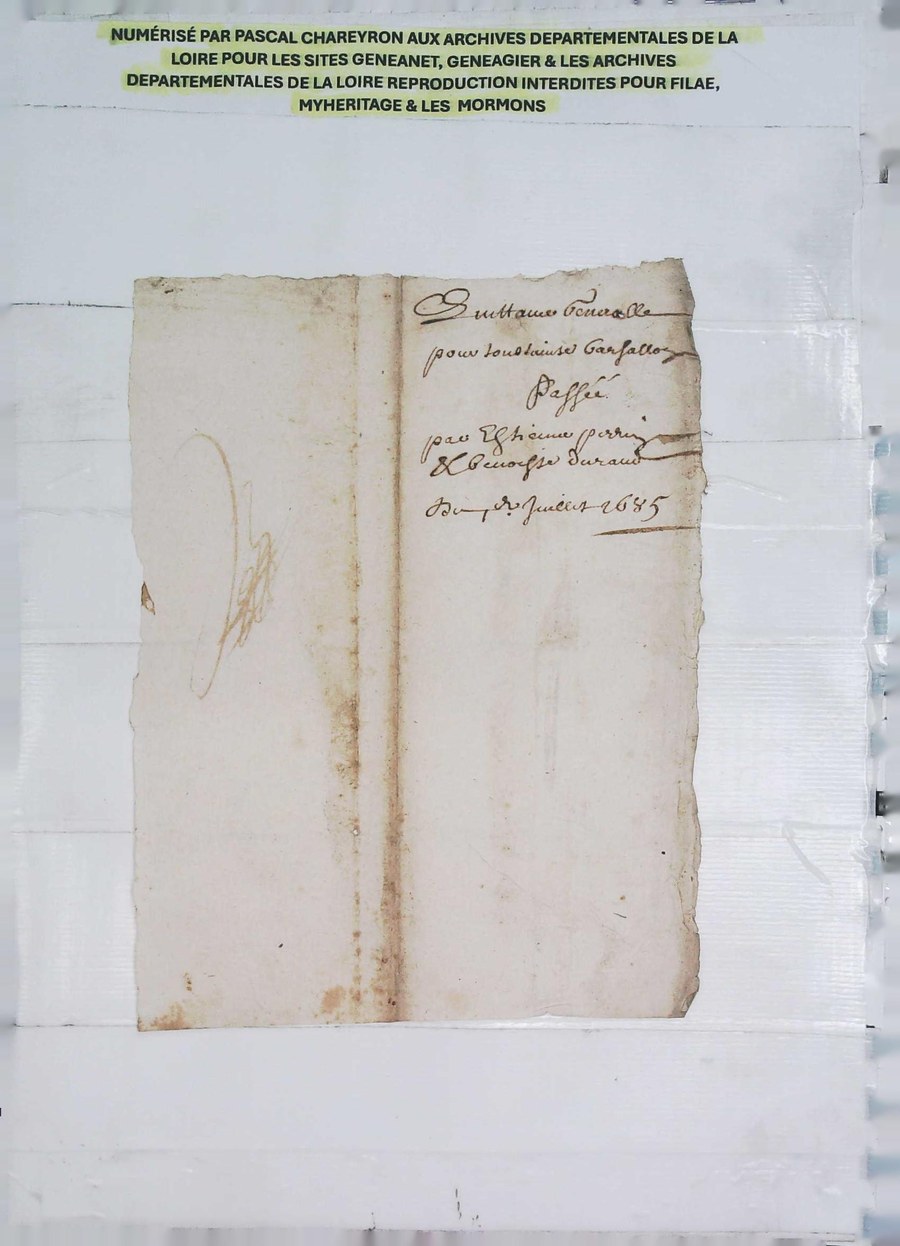 NUMÉRISÉ PAR PASCAL CHAREYRON AUX ARCHIVES DEPARTEMENTALES DE LA
LOIRE POUR LES SITES GENEANET, GENEAGIER & LES ARCHIVES
DEPARTEMENTALES DE LA LOIRE REPRODUCTION INTERDITES POUR FILAE,
MYHERITAGE & LES MORMONS
Quittance Generalle
pour
Passée
par Estienne perrin
& benoiste durand
Juillet 1685